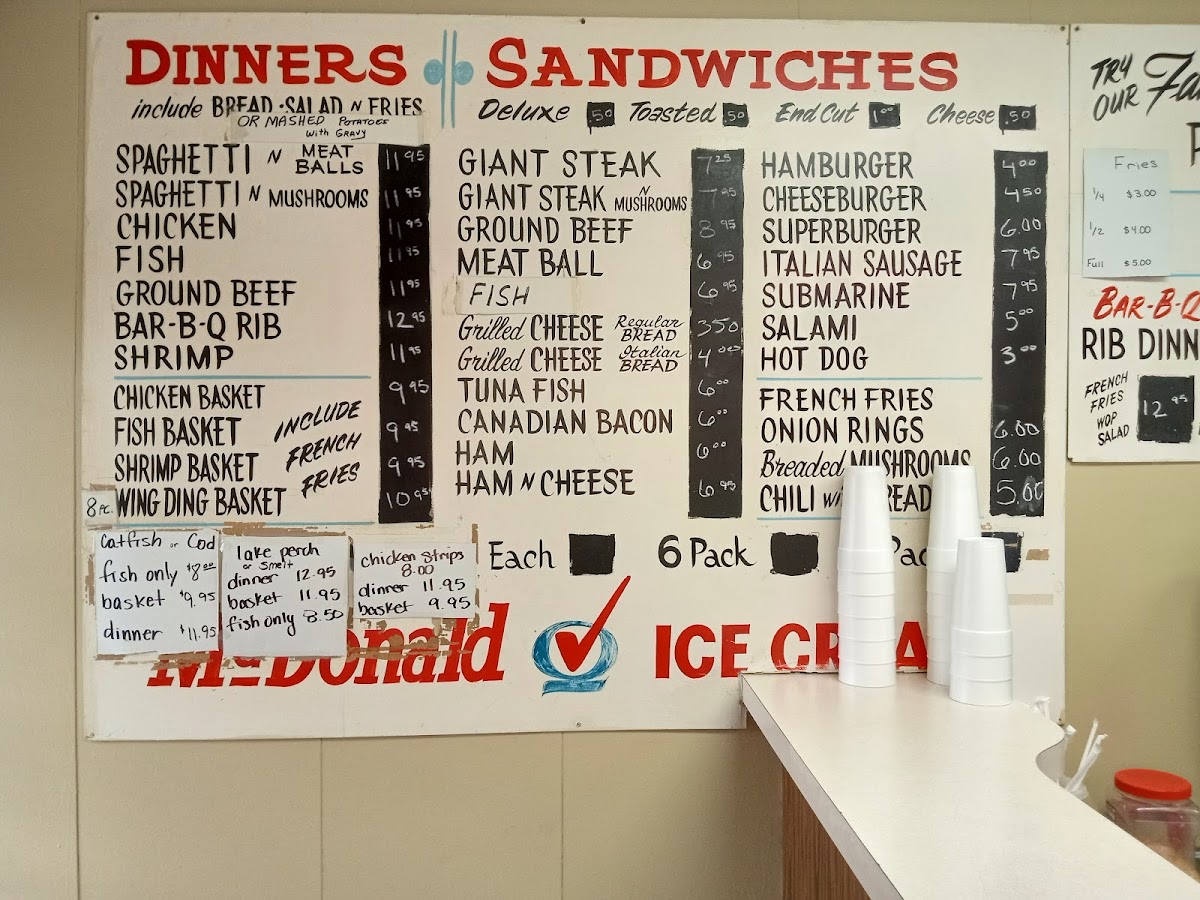 DINNERS
include BREAD • SALAD N FRIES
OR MASHED POTATOES
with GRAVY
SPAGHETTI N MEAT BALLS 11 95
SPAGHETTI N MUSHROOMS 11 95
CHICKEN 11 95
FISH 11 95
GROUND BEEF 11 95
BAR-B-Q RIB 12 95
SHRIMP 11 95
CHICKEN BASKET 9 95
FISH BASKET 9 95
SHRIMP BASKET 9 95
8 PC. WING DING BASKET 10 95
INCLUDE
FRENCH
FRIES
SANDWICHES
Deluxe .50 Toasted .50 End Cut 1 00 Cheese .50
GIANT STEAK 7 25
GIANT STEAK N MUSHROOMS 7 95
GROUND BEEF 8 95
MEAT BALL 6 95
FISH 6 95
Grilled CHEESE Regular BREAD 3 50
Grilled CHEESE Italian BREAD 4 00
TUNA FISH 6 00
CANADIAN BACON 6 00
HAM 6 00
HAM N CHEESE 6 95
HAMBURGER 4 00
CHEESEBURGER 4 50
SUPERBURGER 6.00
ITALIAN SAUSAGE 7 95
SUBMARINE 7 95
SALAMI 5 00
HOT DOG 3 00
FRENCH FRIES
ONION RINGS 6.00
Breaded MUSHROOMS 6.00
CHILI 5.00
Catfish or Cod
fish only $8.00
basket $9.95
dinner $11.95
lake perch
or smelt
dinner 12.95
basket 11.95
fish only 8.50
chicken strips
8.00
dinner 11.95
basket 9.95
Each 6 Pack
McDonald Q ICE
TRY
OUR
Fries
1/4 $3.00
1/2 $4.00
Full $5.00
BAR-B-Q
RIB
FRENCH
FRIES
WOP
SALAD
12 95